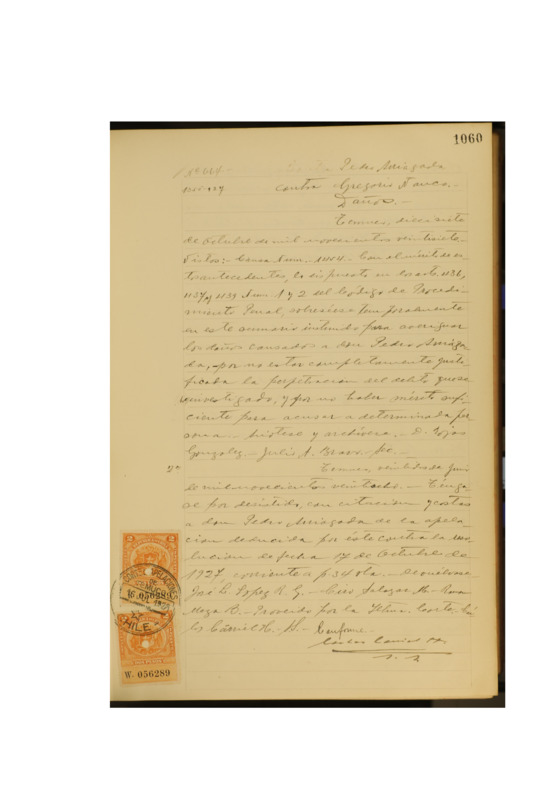 1060
Pedro Arriagada
contra Gregorio
Daños.-
Temuco, diecisiete
de Octubre de mil novecientos veintisiete.
Vistos:- Causa Núm. Con el mérito de es-
tos antecedentes, lo dispuesto en los arts. 1136,
1137 y 1139 Núm. 1 y 2 del Código de Procedi-
miento Penal, sobreseese temporalmente
en este sumario instruido para averiguar
los daños causados a don Pedro Arriaga-
da, por no estar completamente justi-
ficada la perpetración del delito que se
ha investigado, y por no haber mérito sufi-
ciente para acusar a determinada per
sona.- y archívese.- D. Rojas
Gonzalez.- Julio A. Bravo, Sec.-
2a Temuco, de Junio
de mil novecientos veintiocho.- Ténga-
se por desistido, con citación y costas
a don Pedro Arriagada de la apela-
ción deducida por éste contra la reso-
lución de fecha 17 de Octubre de
1927, corriente a f. 34 vta.- Devuélvase.
José L. Lopez R. G.- Ciro Salazar M.-
Meza R.- Proveído por la Iltma. Corte. Cá-
los Carriel H.- Conforme.
2
2
CORTE DE APELACIONES
TEMUCO
CHILE
W. 056289
W. 056289